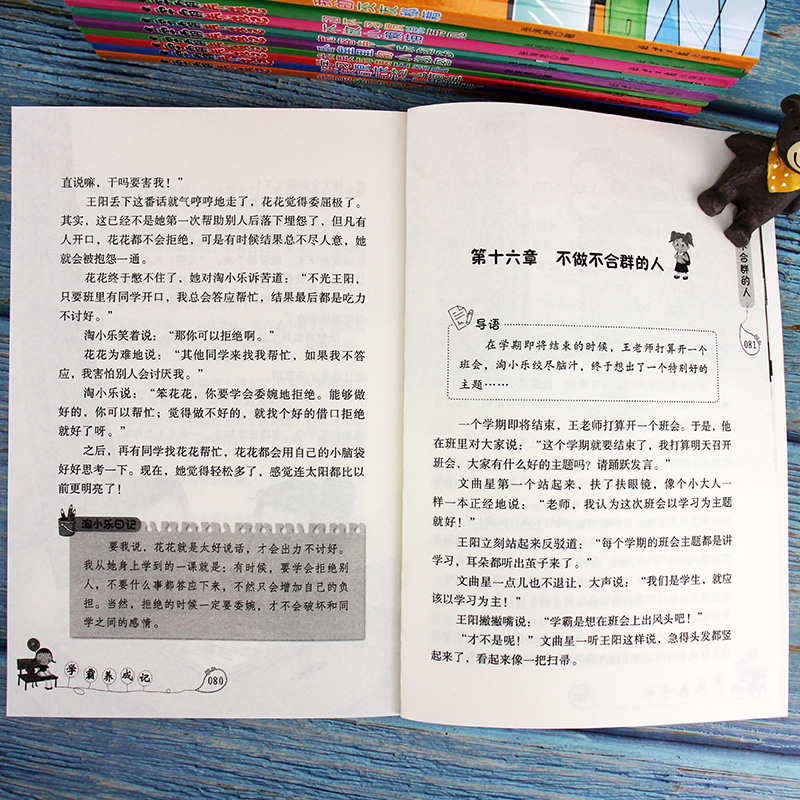 直说嘛，干吗要害我！”
王阳丢下这番话就气哼哼地走了，花花觉得委屈极了。
其实，这已经不是她第一次帮助别人后落下埋怨了，但凡有
人开口，花花都不会拒绝，可是有时候结果总不尽人意，她
就会被抱怨一通。
花花终于憋不住了，她对淘小乐诉苦道：“不光王阳，
只要班里有同学开口，我总会答应帮忙，结果最后都是吃力
不讨好。”
淘小乐笑着说：“那你可以拒绝啊。”
花花为难地说：“其他同学来找我帮忙，如果我不答
应，我害怕别人会讨厌我。”
淘小乐说：“笨花花，你要学会委婉地拒绝。能够做
好的，你可以帮忙；觉得做不好的，就找个好的借口拒绝
就好了呀。”
之后，再有同学找花花帮忙，花花都会用自己的小脑袋
好好思考一下。现在，她觉得轻松多了，感觉连太阳都比以
前更明亮了！
淘小乐日记
要我说，花花就是太好说话，才会出力不讨好。
我从她身上学到的一课就是：有时候，要学会拒绝别
人，不要什么事都答应下来，不然只会增加自己的负
担。当然，拒绝的时候一定要委婉，才不会破坏和同
学之间的感情。
学霸养成记
080
第十六章 不做不合群的人
导语
在学期即将结束的时候，王老师打算开一个
班会，淘小乐绞尽脑汁，终于想出了一个特别好的
主题……
一个学期即将结束，王老师打算开一个班会。于是，他
在班里对大家说：“这个学期就要结束了，我打算明天召开
班会，大家有什么好的主题吗？请踊跃发言。”
文曲星第一个站起来，扶了扶眼镜，像个小大人一
样一本正经地说：“老师，我认为这次班会以学习为主题
就好！”
王阳立刻站起来反驳道：“每个学期的班会主题都是讲
学习，耳朵都听出茧子来了。”
文曲星一点儿也不退让，大声说：“我们是学生，就应
该以学习为主！”
王阳撇撇嘴说：“学霸是想在班会上出风头吧！”
“才不是呢！”文曲星一听王阳这样说，急得头发都竖
起来了，看起来像一把扫帚。
不合群的人
081